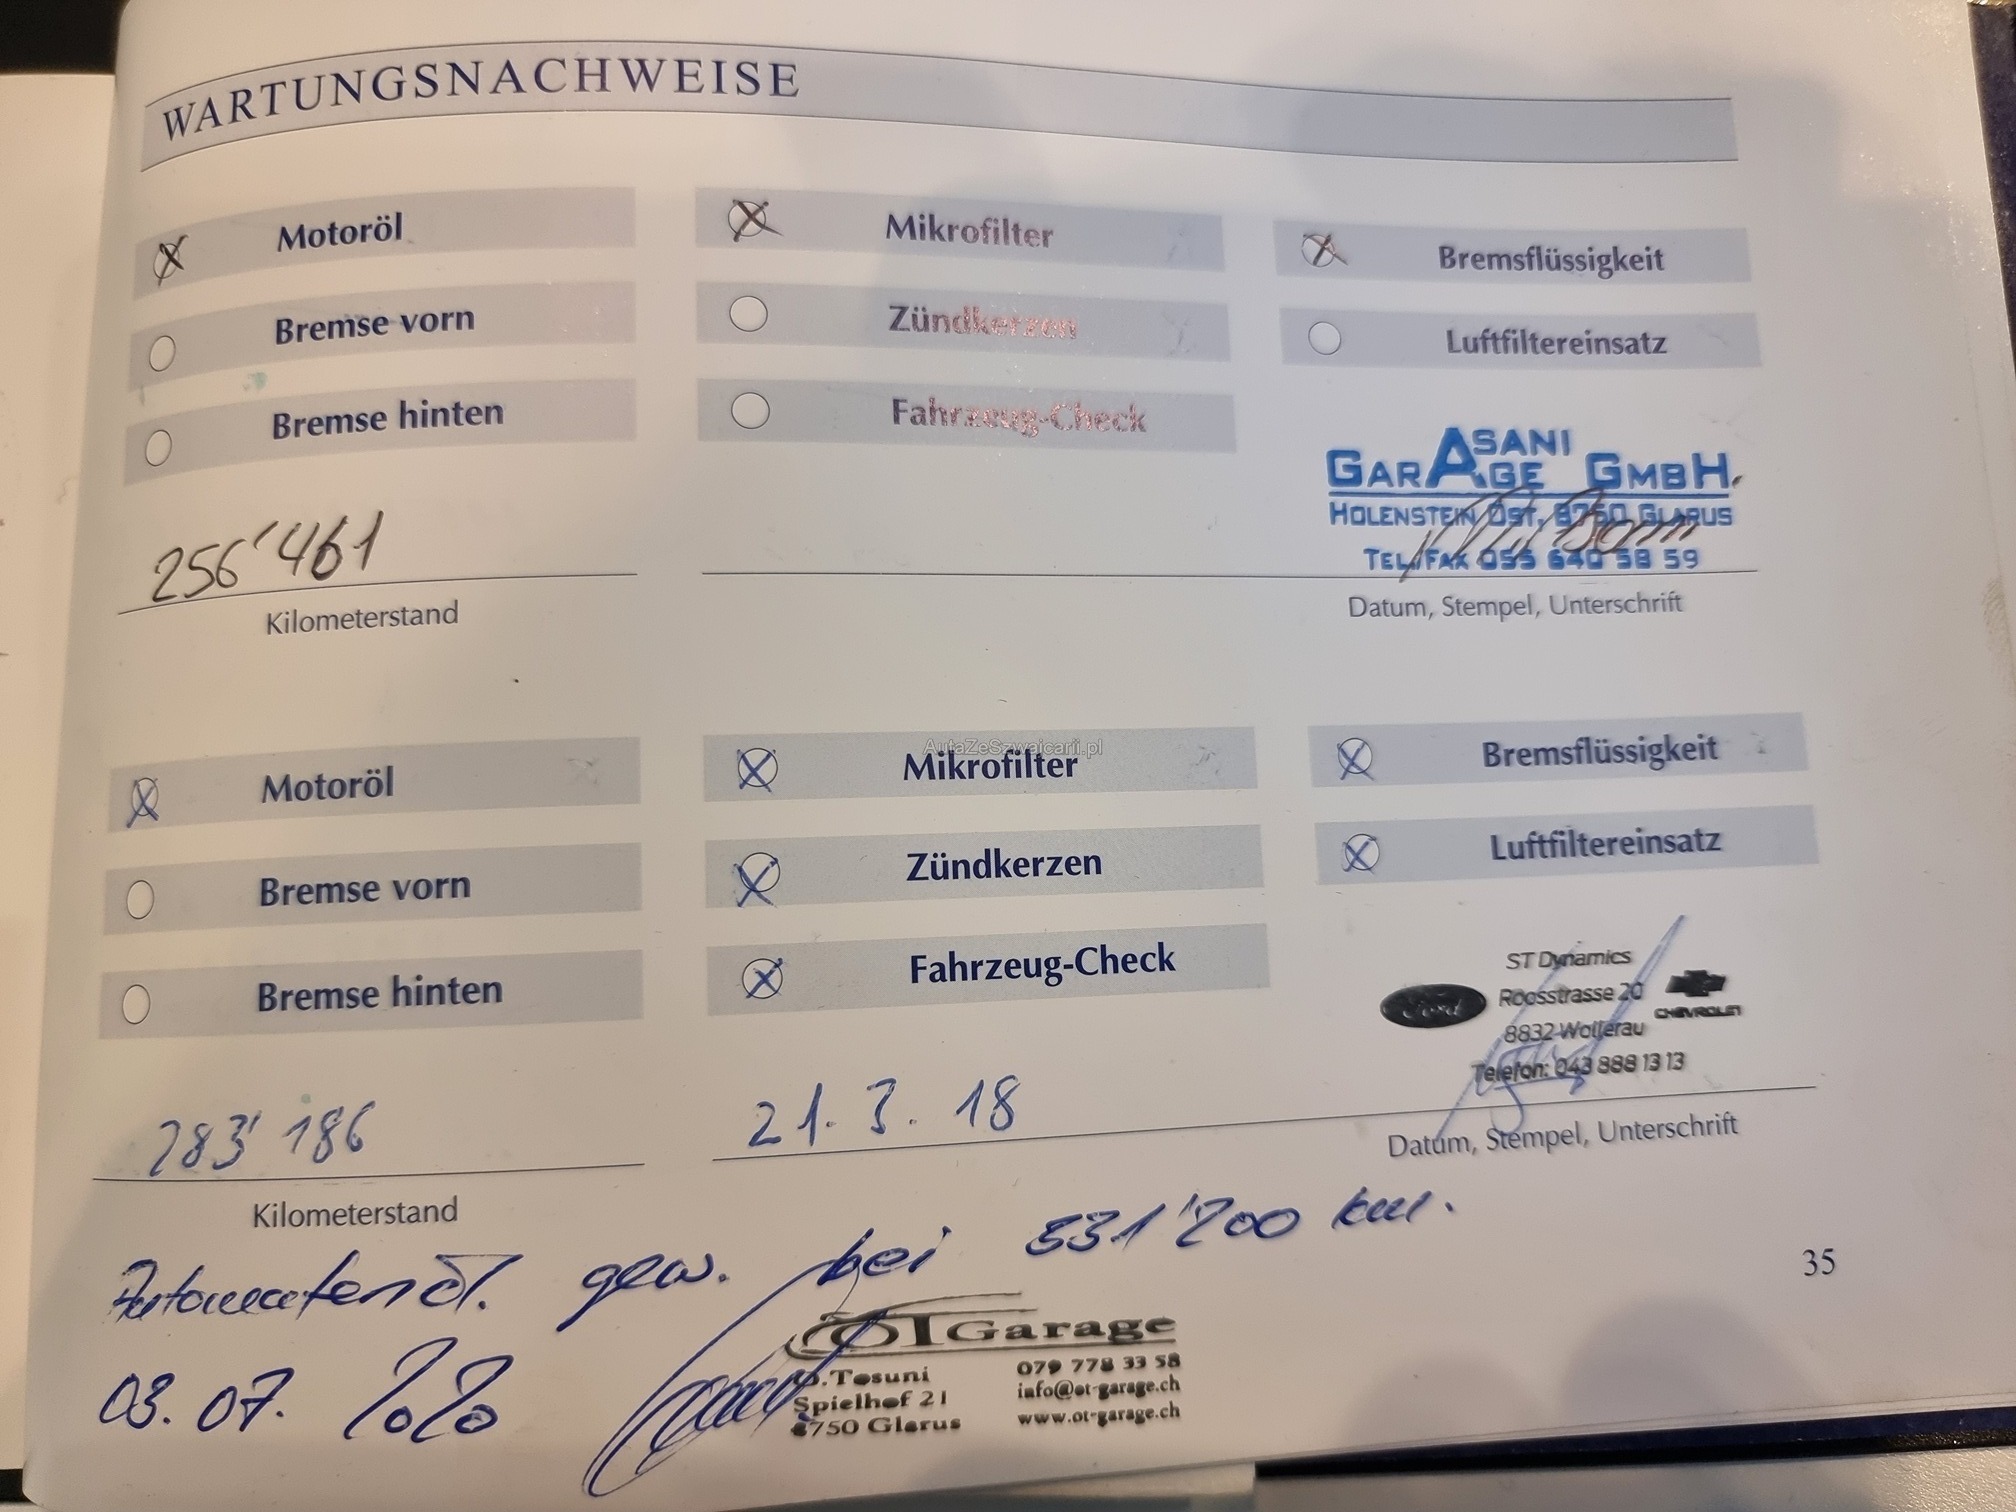 WARTUNGSNACHWEISE
Motoröl Mikrofilter Bremsflüssigkeit
Bremse vorn Zündkerzen Luftfiltereinsatz
Bremse hinten Fahrzeug-Check
ASANI
GARAGE GMBH.
HOLENSTEIN OST, 8750 GLARUS
TEL/FAX 055 640 58 59
256'461
Kilometerstand Datum, Stempel, Unterschrift
AutaZeSzwajcarii.pl
Motoröl Mikrofilter Bremsflüssigkeit
Bremse vorn Zündkerzen Luftfiltereinsatz
Bremse hinten Fahrzeug-Check
ST Dynamics
Ford Roosstrasse 20 CHEVROLET
8832 Wollerau
Telefon: 043 888 13 13
283'186 21.3.18
Kilometerstand Datum, Stempel, Unterschrift
Automatenöl. gew. bei 331'200 km.
35
OT Garage
03.07.2020
.Tosuni 079 778 33 58
Spielhof 21 info@ot-garage.ch
8750 Glarus www.ot-garage.ch